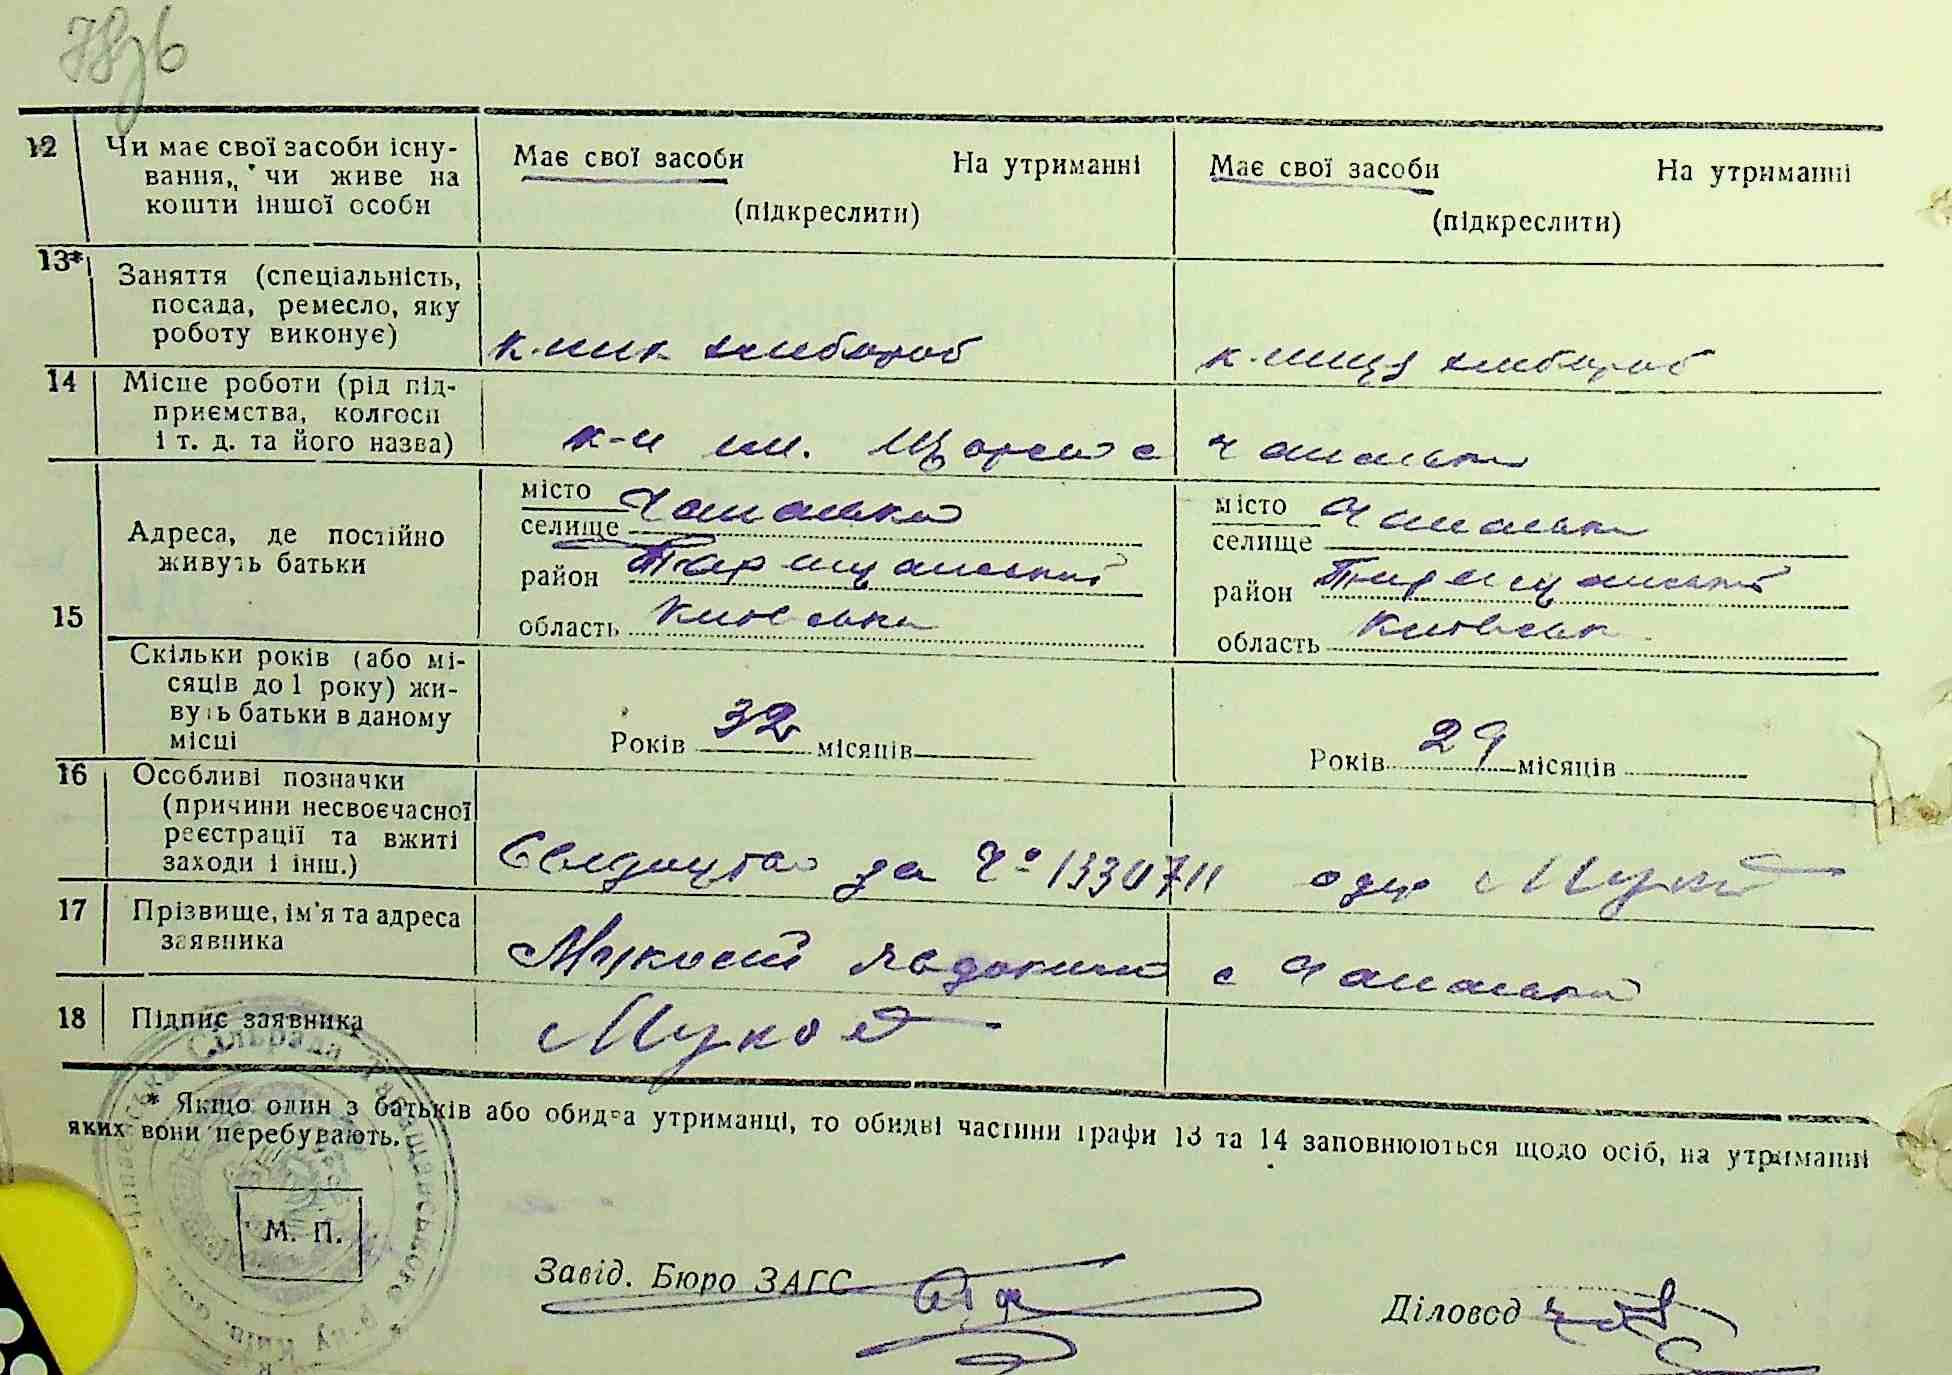 12 Чи має свої засоби існу-
вання, чи живе на
кошти іншої особи
Має свої засоби На утриманні
(підкреслити)
Має свої засоби На утриманні
(підкреслити)
13* Заняття (спеціальність,
посада, ремесло, яку
роботу виконує)
к-ник хлібороб
к-ниця хлібороб
14 Місце роботи (рід під-
приємства, колгосп
і т. д. та його назва)
к-п ім. Щорса с Чапаєвка
15 Адреса, де постійно
живуть батьки
місто
селище Чапаєвка
район Таращанський
область Київська
місто
селище Чапаєвка
район Таращанський
область Київськ
Скільки років (або мі-
сяців до 1 року) жи-
вуть батьки в даному
місці
Років 32 місяців
Років 29 місяців
16 Особливі позначки
(причини несвоєчасної
реєстрації та вжиті
заходи і інш.)
за № 1330711
17 Прізвище, ім'я та адреса
заявника
с Чапаєвка
18 Підпис заявника
* Якщо один з батьків або обидва утриманці, то обидві частини графи 13 та 14 заповнюються щодо осіб, на утриманні
яких вони перебувають.
М. П.
Сільрада Таращанського р-ну Київ. обл.
Завід. Бюро ЗАГС
Діловод